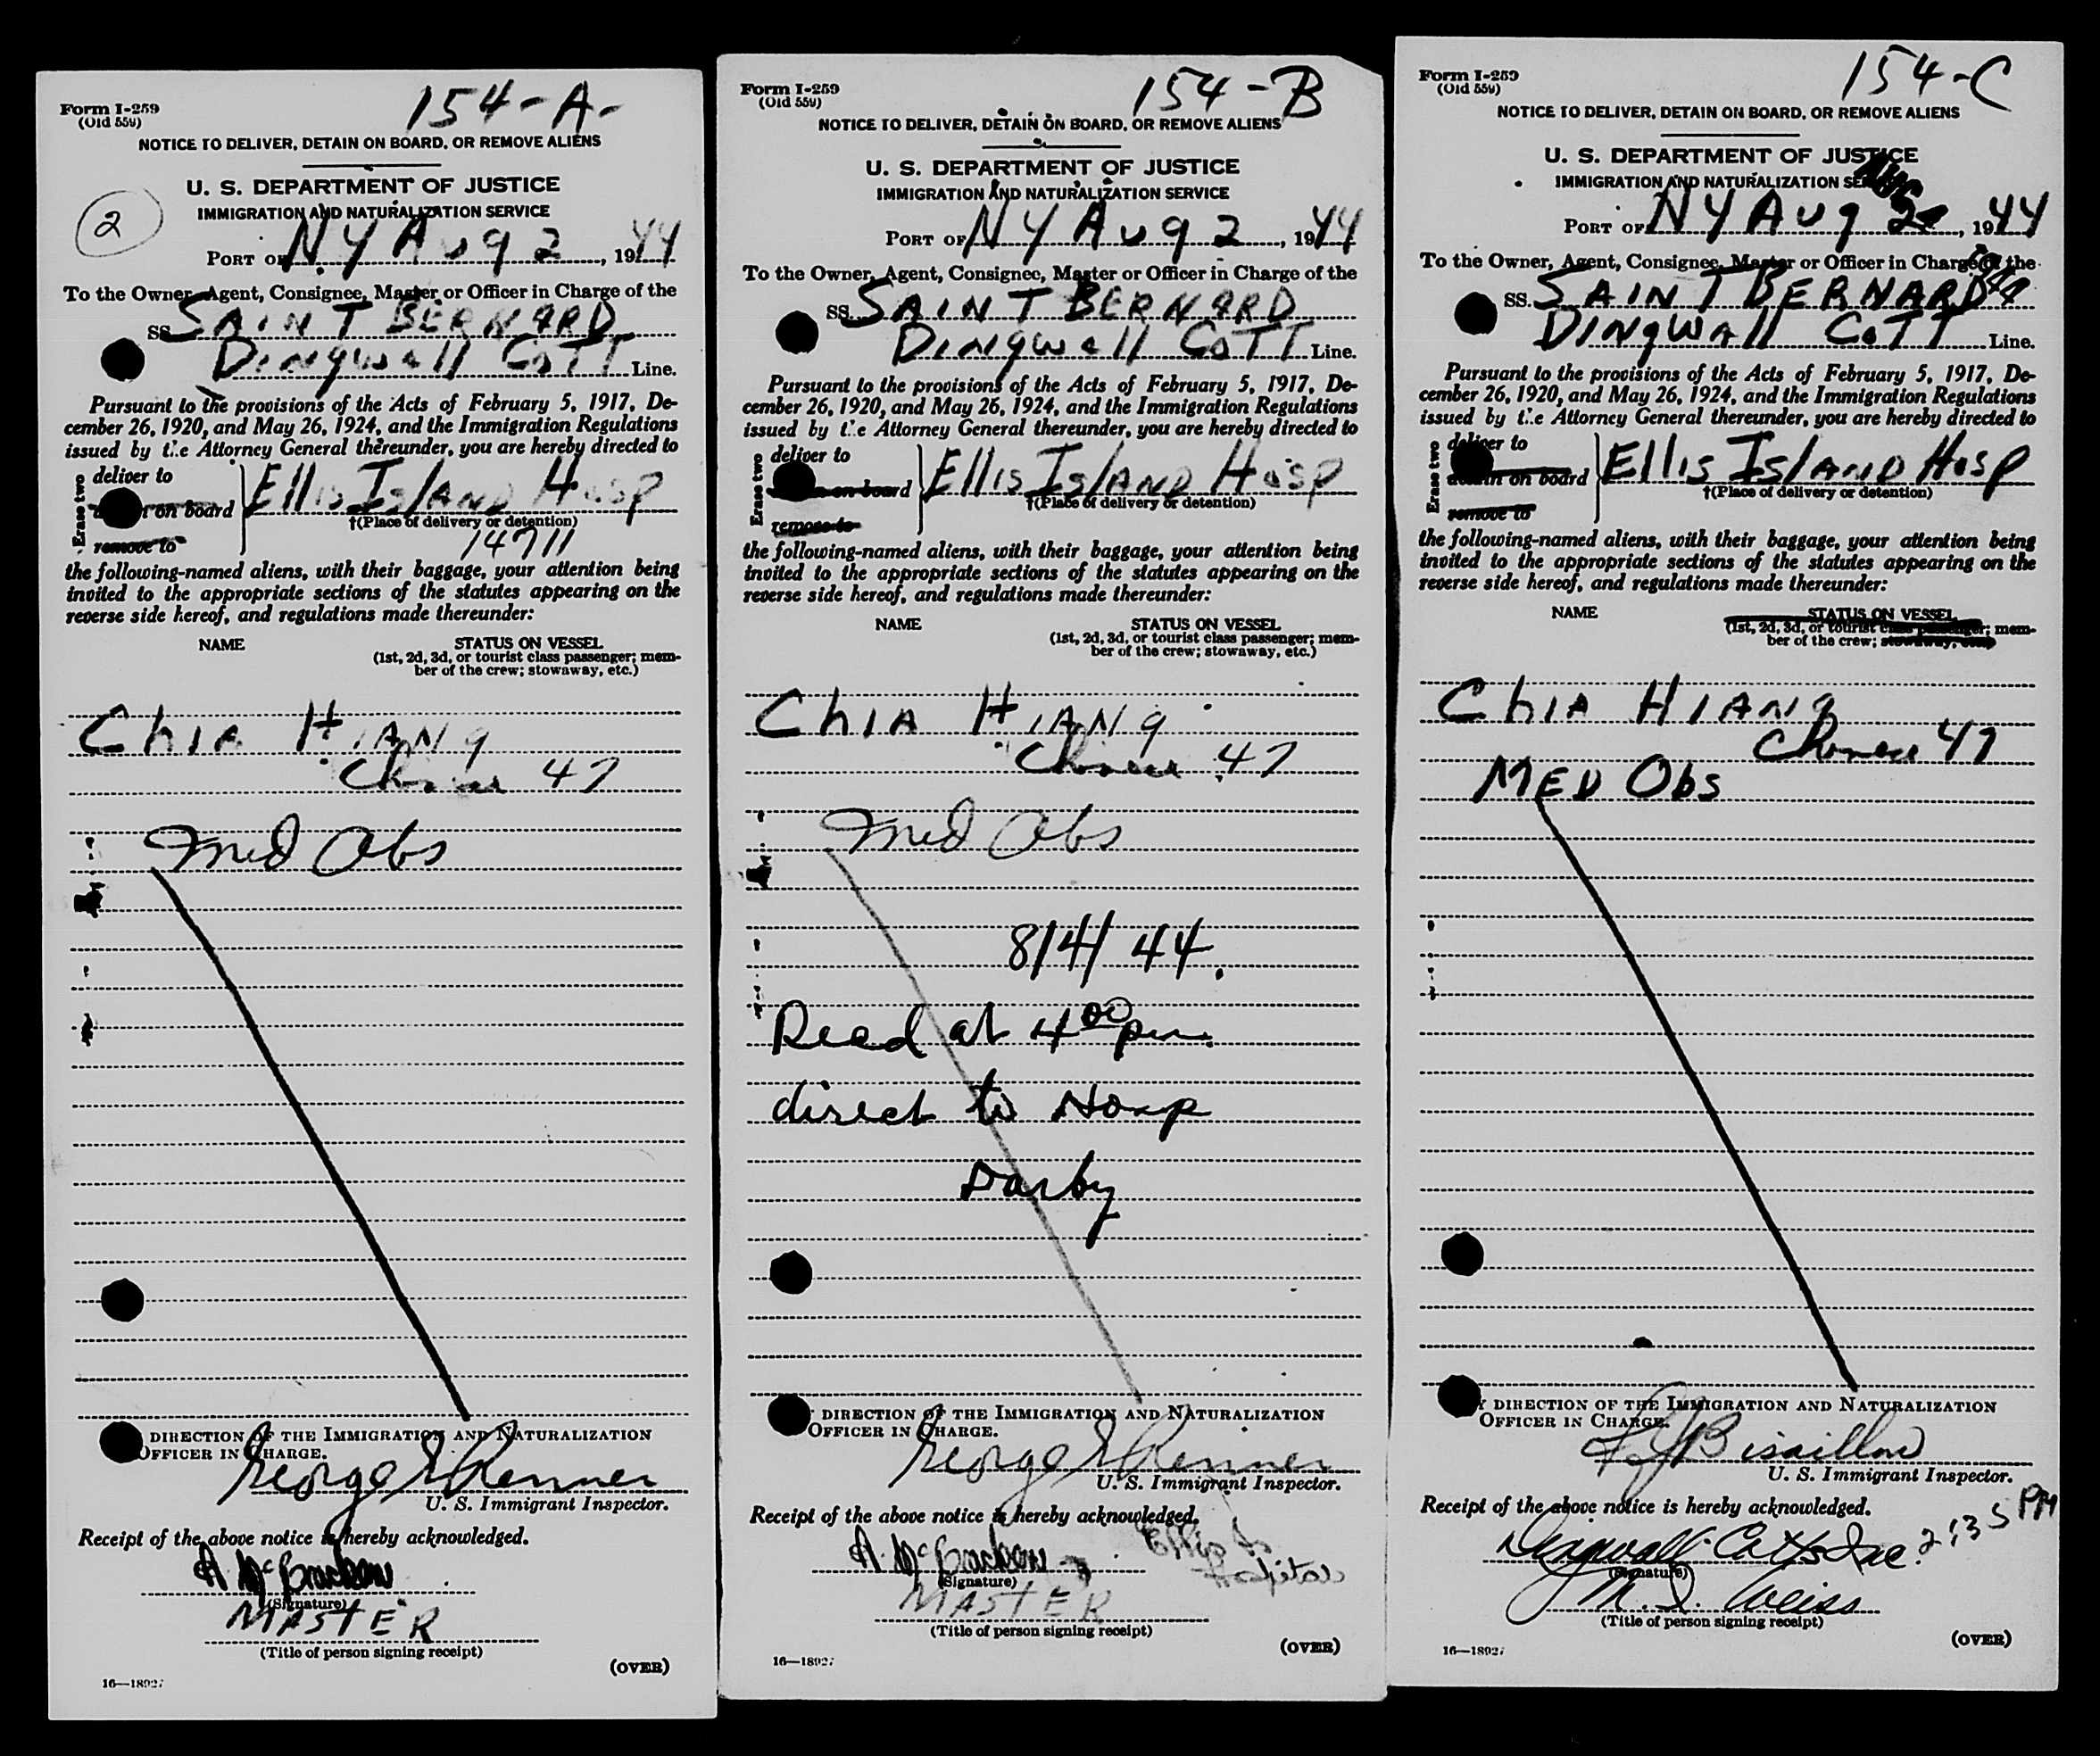 154-A-
Form I-259
(Old 559)
NOTICE TO DELIVER, DETAIN ON BOARD, OR REMOVE ALIENS
U. S. DEPARTMENT OF JUSTICE
IMMIGRATION AND NATURALIZATION SERVICE
2
PORT OF N Y Aug 2, 1944
To the Owner, Agent, Consignee, Master or Officer in Charge of the
SS. SAINT BERNARD
Dingwall CoTT Line.
Pursuant to the provisions of the Acts of February 5, 1917, De-
cember 26, 1920, and May 26, 1924, and the Immigration Regulations
issued by the Attorney General thereunder, you are hereby directed to
Erase two
deliver to
on board
remove to
Ellis Island Hosp
†(Place of delivery or detention)
14711
the following-named aliens, with their baggage, your attention being
invited to the appropriate sections of the statutes appearing on the
reverse side hereof, and regulations made thereunder:
NAME
STATUS ON VESSEL
(1st, 2d, 3d, or tourist class passenger; mem-
ber of the crew; stowaway, etc.)
Chia Hiang
Chinese 47
Med Obs
DIRECTION OF THE IMMIGRATION AND NATURALIZATION
OFFICER IN CHARGE.
George Renner
U. S. Immigrant Inspector.
Receipt of the above notice is hereby acknowledged.
(Signature)
MASTER
(Title of person signing receipt)
(OVER)
16—18927
154-B
Form I-259
(Old 559)
NOTICE TO DELIVER, DETAIN ON BOARD, OR REMOVE ALIENS
U. S. DEPARTMENT OF JUSTICE
IMMIGRATION AND NATURALIZATION SERVICE
PORT OF N Y Aug 2, 1944
To the Owner, Agent, Consignee, Master or Officer in Charge of the
SS. SAINT BERNARD
Dingwall CoTT Line.
Pursuant to the provisions of the Acts of February 5, 1917, De-
cember 26, 1920, and May 26, 1924, and the Immigration Regulations
issued by the Attorney General thereunder, you are hereby directed to
Erase two
deliver to
on board
remove to
Ellis Island Hosp
†(Place of delivery or detention)
the following-named aliens, with their baggage, your attention being
invited to the appropriate sections of the statutes appearing on the
reverse side hereof, and regulations made thereunder:
NAME
STATUS ON VESSEL
(1st, 2d, 3d, or tourist class passenger; mem-
ber of the crew; stowaway, etc.)
Chia Hiang
Chinese 47
Med Obs
8/4/44.
Recd at 4 00 pm.
direct to Hosp
Darby
DIRECTION OF THE IMMIGRATION AND NATURALIZATION
OFFICER IN CHARGE.
George Renner
U. S. Immigrant Inspector.
Receipt of the above notice is hereby acknowledged.
Ellis Is
Hospital
(Signature)
MASTER
(Title of person signing receipt)
(OVER)
16—18927
154-C
Form I-259
(Old 559)
NOTICE TO DELIVER, DETAIN ON BOARD, OR REMOVE ALIENS
U. S. DEPARTMENT OF JUSTICE
IMMIGRATION AND NATURALIZATION SERVICE
PORT OF N Y Aug 2, 1944
To the Owner, Agent, Consignee, Master or Officer in Charge of the
SS. SAINT BERNARD
Dingwall CoTT Line.
Pursuant to the provisions of the Acts of February 5, 1917, De-
cember 26, 1920, and May 26, 1924, and the Immigration Regulations
issued by the Attorney General thereunder, you are hereby directed to
Erase two
deliver to
detain on board
remove to
Ellis Island Hosp
†(Place of delivery or detention)
the following-named aliens, with their baggage, your attention being
invited to the appropriate sections of the statutes appearing on the
reverse side hereof, and regulations made thereunder:
NAME
STATUS ON VESSEL
(1st, 2d, 3d, or tourist class passenger; mem-
ber of the crew; stowaway, etc.)
Chia Hiang
Chinese 47
MED Obs
DIRECTION OF THE IMMIGRATION AND NATURALIZATION
OFFICER IN CHARGE.
Bisaillon
U. S. Immigrant Inspector.
Receipt of the above notice is hereby acknowledged.
Dingwall Cotts Inc. 2:35 PM
(Signature)
M. I. Weiss
(Title of person signing receipt)
(OVER)
16—18927